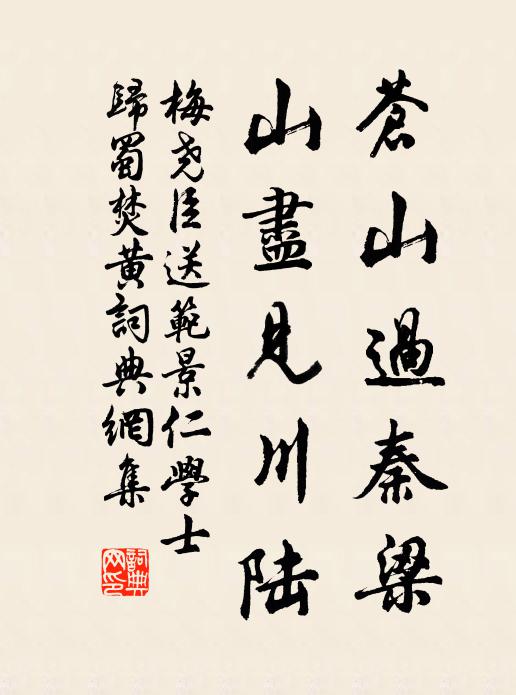 蒼山過秦梁
山盡見川陆
梅尧臣送範景仁學士
歸蜀焚黄詞典網集
詞典網印